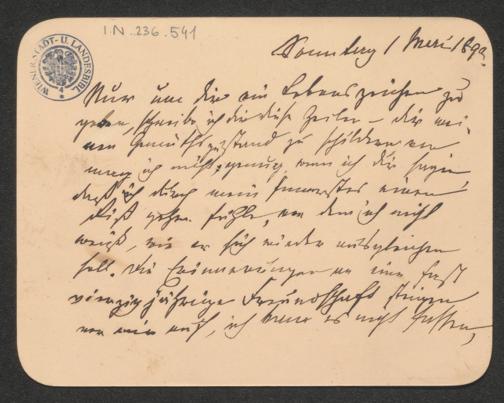 I.N. 236.541
WIENER STADT- U. LANDESBIBL.
Sonntag 1 Mai 189
Nur um dir ein Lebenszeichen zu
geben, schreibe ich dir diese Zeilen – dir mei-
nen Gemüthszustand zu schildern
mag ich nicht, genug wenn ich dir sage
daß ich durch mein Innerstes einen
Riß gehen fühle, von dem ich nicht
weiß, wie er sich wieder ausgleichen
soll. Die Erinnerungen an eine fast
vierzigjährige Freundschaft steigen
vor mir auf, ich kann es nicht fassen,